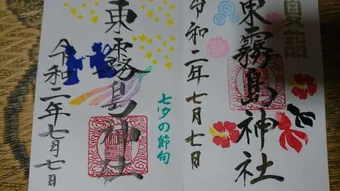 奉詣
東霧島神社
令和二年七月七日
東霧島神社
七夕の節句
令和二年七月七日